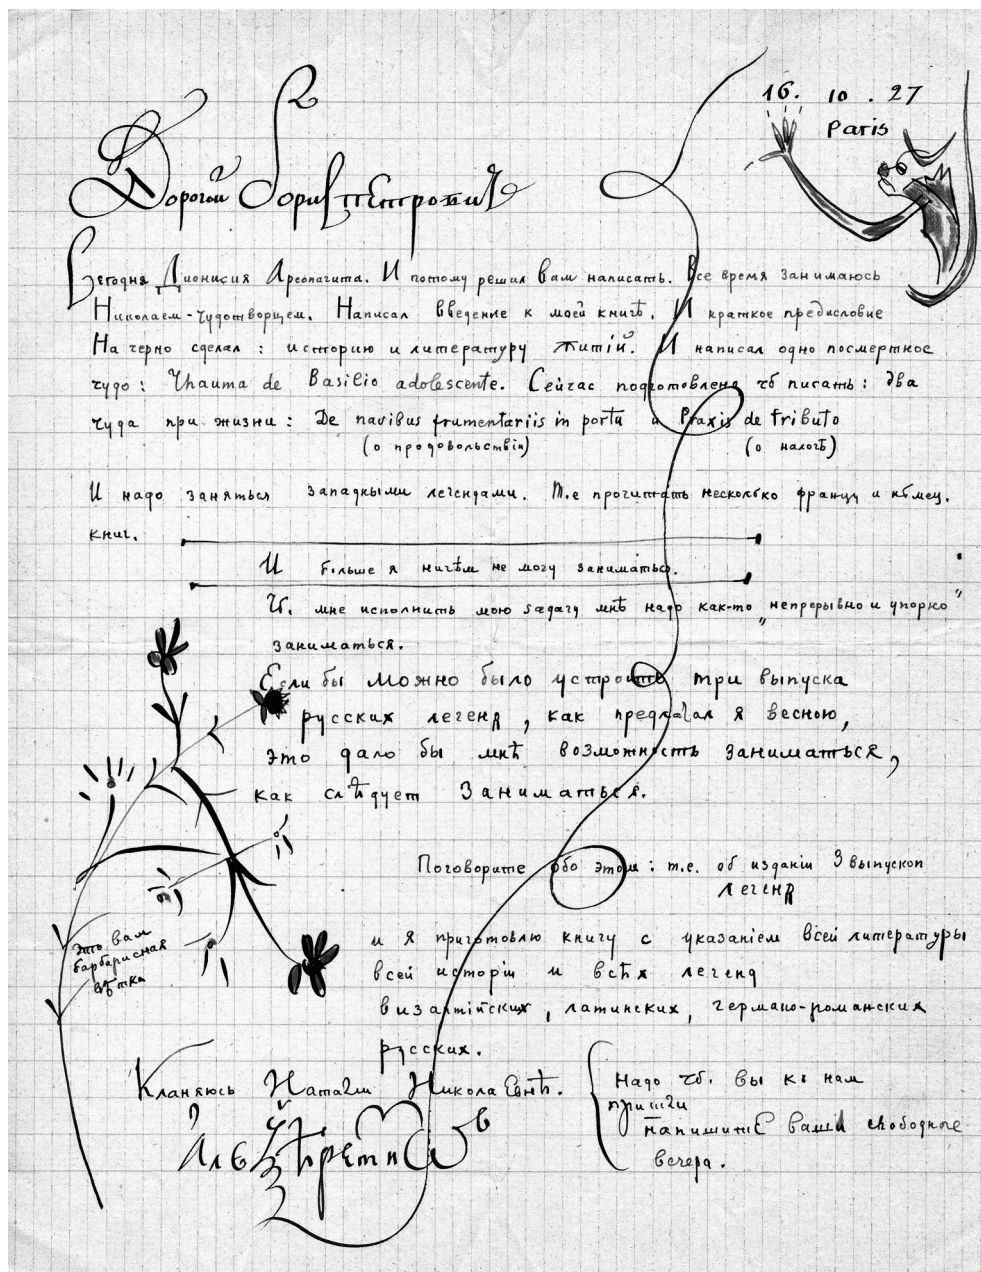 16. 10. 27
Paris
Дорогой Борис Петрович
Сегодня Дионисия Ареопагита. И потому решил вам написать. Все время занимаюсь
Николаем-чудотворцем. Написал введение к моей книгѣ. И краткое предисловие
На черно сделал: историю и литературу житій. И написал одно посмертное
чудо: Thauma de Basilio adolescente. Сейчас подготовлено чб писать: два
чуда при жизни: De navibus frumentariis in portu и Praxis de tributo
(о продовольствіи) (о налогѣ)
И надо заняться западными легендами. Т.е прочитать несколько франц и нѣмец.
книг.
И больше я ничѣм не могу заниматься.
Чб. мне исполнить мою задачу мнѣ надо как-то „непрерывно и упорно"
заниматься.
Если бы можно было устроить три выпуска
русских легенд, как предлагал я весною,
это дало бы мнѣ возможность заниматься,
как слѣдует заниматься.
Поговорите обо этом: т.е. об изданіи 3 выпусков
легенд
и я приготовлю книгу с указаніем всей литературы
всей исторіи и всѣх легенд
византійских, латинских, германо-романских
русских.
это вам
барбарисная
вѣтка
Кланяюсь Наталии Николаевнѣ.
Алексѣй Ремизов
Надо чб. вы к нам
пришли
напишите ваши свободные
вечера.